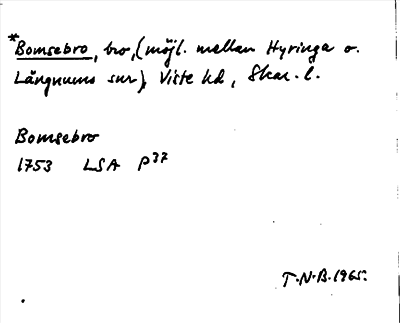 *Bomsebro, bro, (möjl. mellan Hyringa o.
Längnums snr), Viste hd, Skar. l.
Bomsebro
1753 LSA P37
T.N.B. 1965.